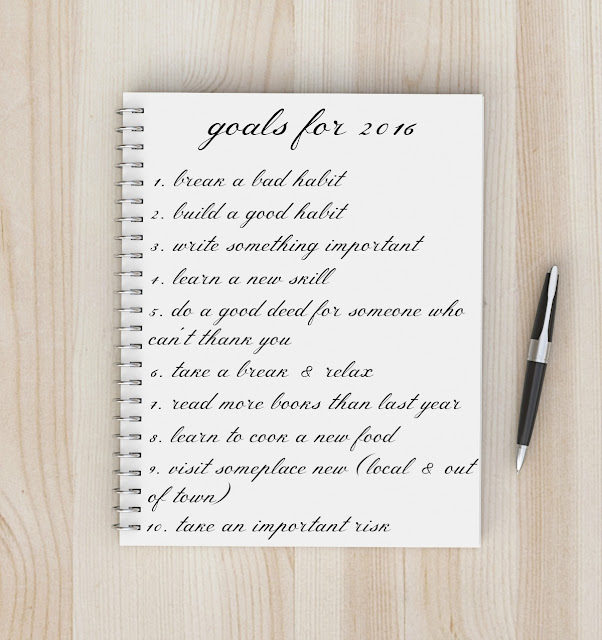 goals for 2016
1. break a bad habit
2. build a good habit
3. write something important
4. learn a new skill
5. do a good deed for someone who
can't thank you
6. take a break & relax
7. read more books than last year
8. learn to cook a new food
9. visit someplace new (local & out
of town)
10. take an important risk